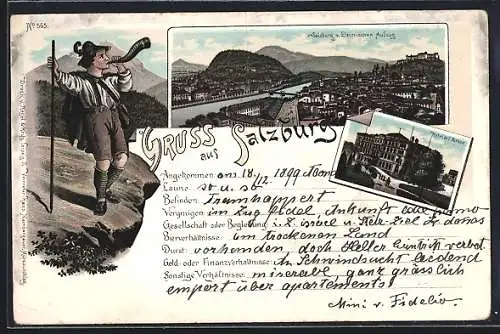 No 565.
Salzburg v. Electrischen Aufzug
Gruss aus Salzburg
Angekommen am 18/12 1899
Laune: so u. so
Befinden:
Vergnügen im Zug fidel, Ankunft
Gesellschaft oder Begleitung: i. Z. u. Herz
Bierverhältnisse: im trockenen Land
Durst: vorhanden, doch Keller
Geld- oder Finanzverhältnisse: An Schwindsucht leidend
Sonstige Verhältnisse: miserabel, ganz grässlich
empört über apartements!
Mimi v. Fidelio.